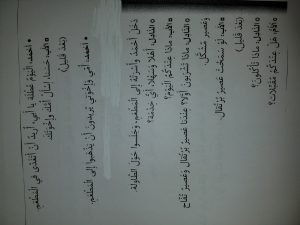 • أحمد: اَلْيَوْمَ عُطْلَة يا أبي، أُريدُ أَنْ أَتَغَدّى في المَطْعَم.
• الأب: حَسَناً، اِسْأَلْ أُمَّكَ وَإِخْوَتَكَ.
(بَعْدَ قَليل)
• أحمد: أُمّي وَإِخْوَتي يُريدونَ أَنْ يَذْهَبوا إلى المَطْعَم.
دَخَلَ أَحْمَدُ وَأُسْرَتُهُ إلى المَطْعَمِ، وَجَلَسوا حَوْلَ الطّاوِلَة.
• النّادِل: أَهْلاً وَسَهْلاً، أَيُّ خِدْمَة؟
• الأب: ماذا عِنْدَكُمُ اليَوْم؟
• النّادِل: ماذا تَشْرَبونَ أَوَّلاً؟ عِنْدَنا عَصير بُرْتُقال وَعَصير تُفّاح
وَعَصير مُشَكَّل.
• الأب: لَوْ سَمَحْتَ عَصير بُرْتُقال.
(بَعْدَ قَليل)
• النّادِل: ماذا تَأْكُلونَ؟
• الأم: هَلْ عِنْدَكُمْ مُقَبِّلات؟